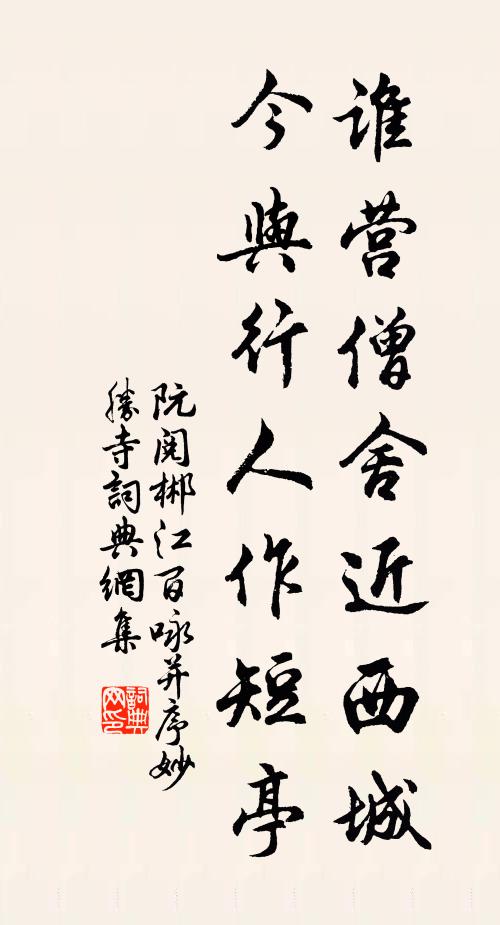 谁营僧舍近西城
今与行人作短亭
阮阅郴江百咏并序妙
胜寺词典网集
词典网印